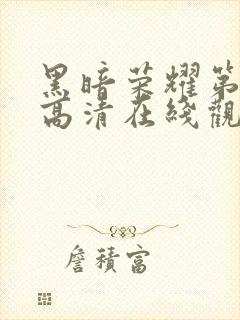 黑暗荣耀第
高清在线觀
詹積富